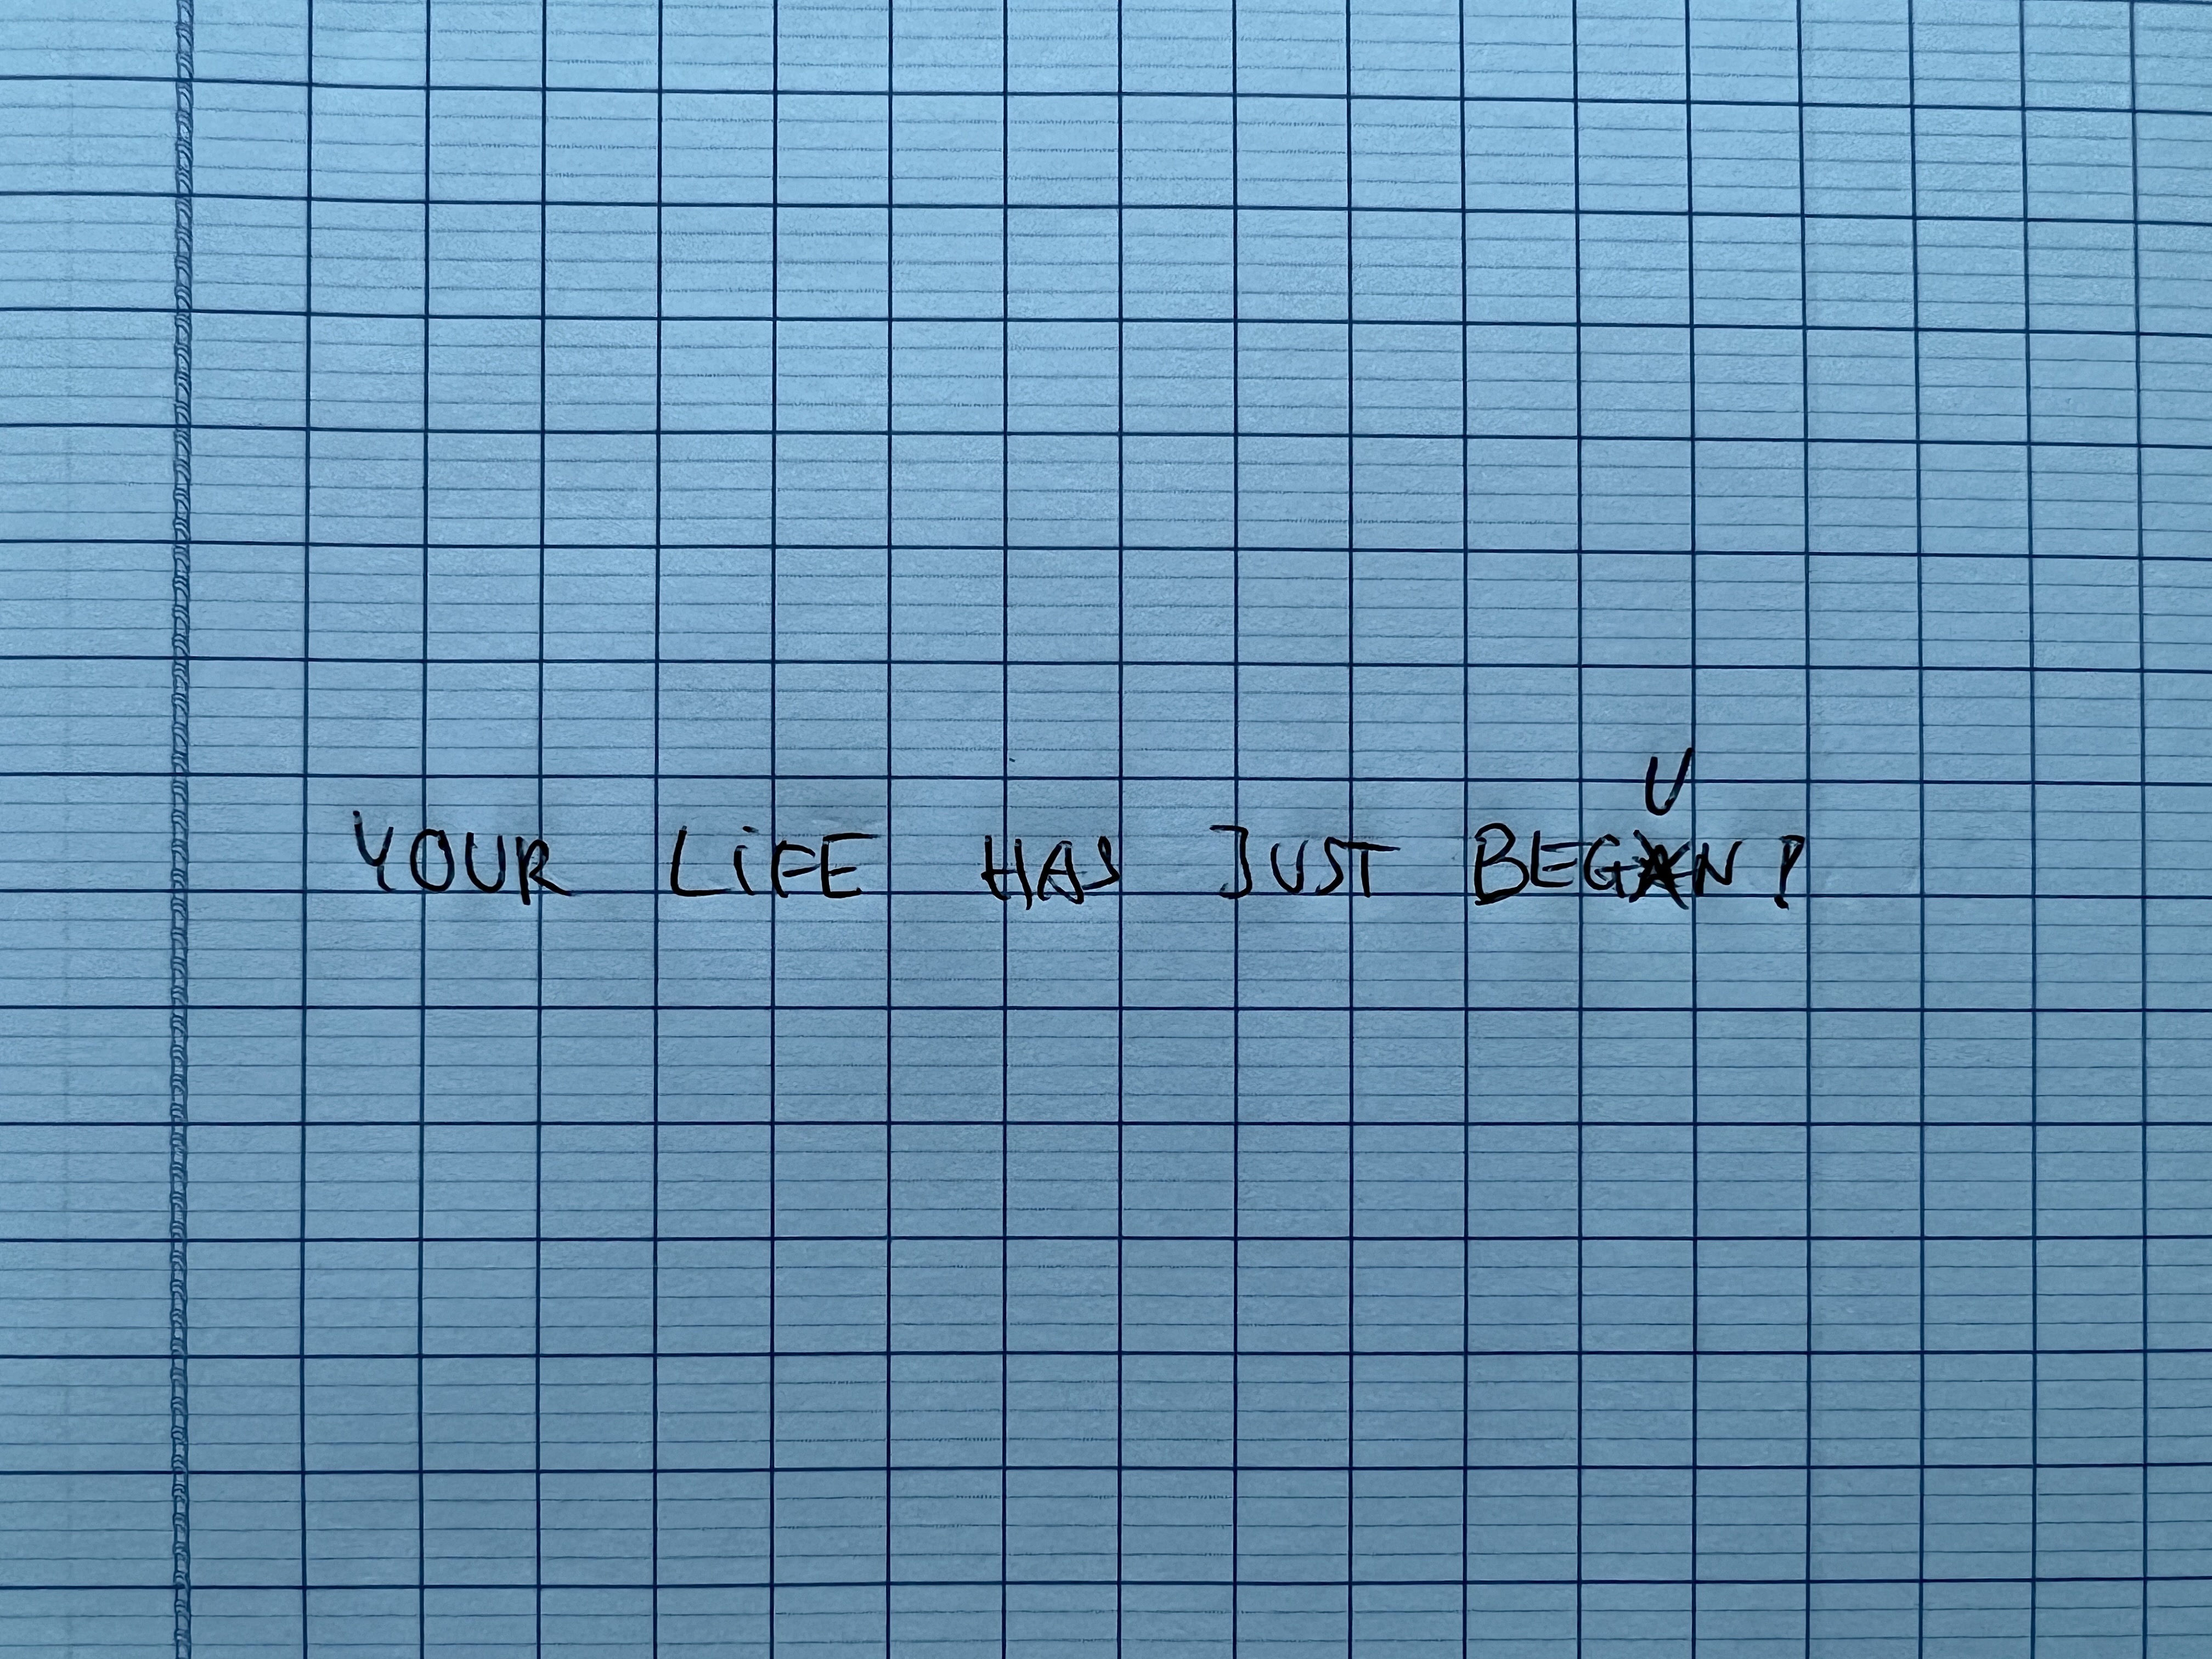 YOUR LiFE HAS JUST BEGUN!